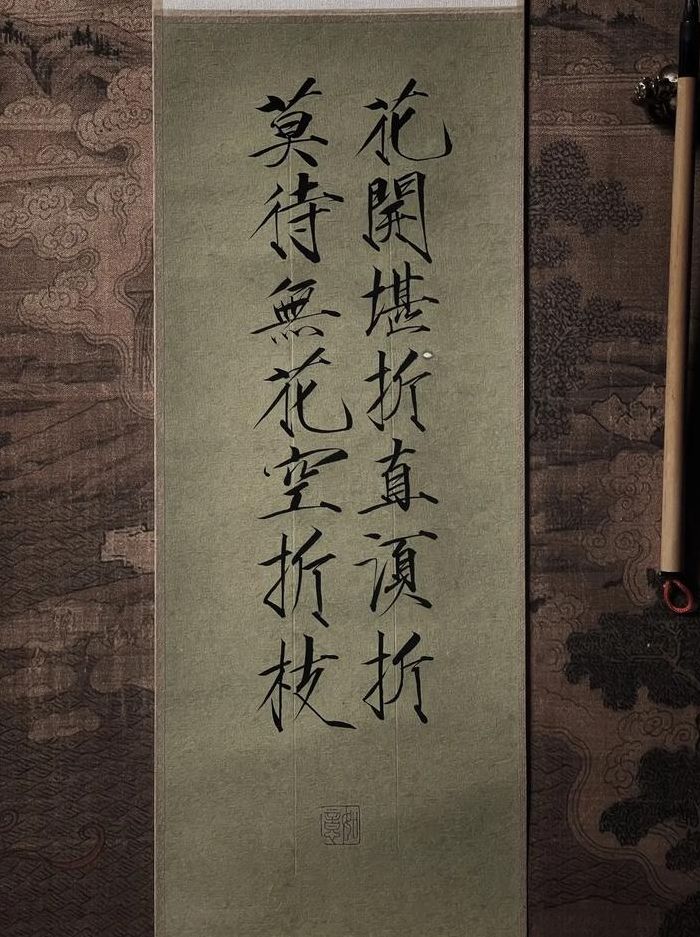 花開堪折直須折
莫待無花空折枝
如意